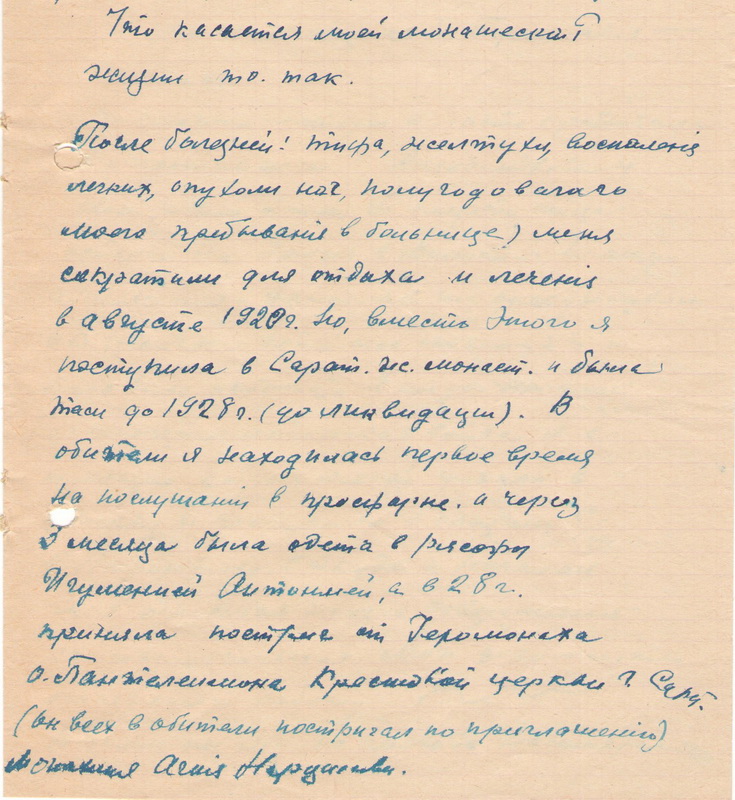 Что касается моей монашеской
жизни то. так.
После болезней! тифа, желтухи, воспаленія
легких, опухоли ног, полугодовачаго
моего пребыванія в больнице) меня
сократили для отдыха и леченія
в августе 1920 г. Но, вместь этого я
поступила в Сарат. ж. монаст. и была
там до 1928 г. (до ликвидации). В
обители я находилась первое время
на послушаніи в просфорне. а через
3 месяца была одета в рясофр
Игуменией Антонией, а в 28 г.
приняла постриг от Іеромонаха
о. Пантелеимона Крестовой церкви г. Сарат.
(он всех в обители постригал по приглашенію)
Монахиня